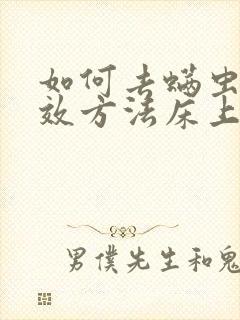 如何去螨虫
效方法床上
男僕先生和鬼